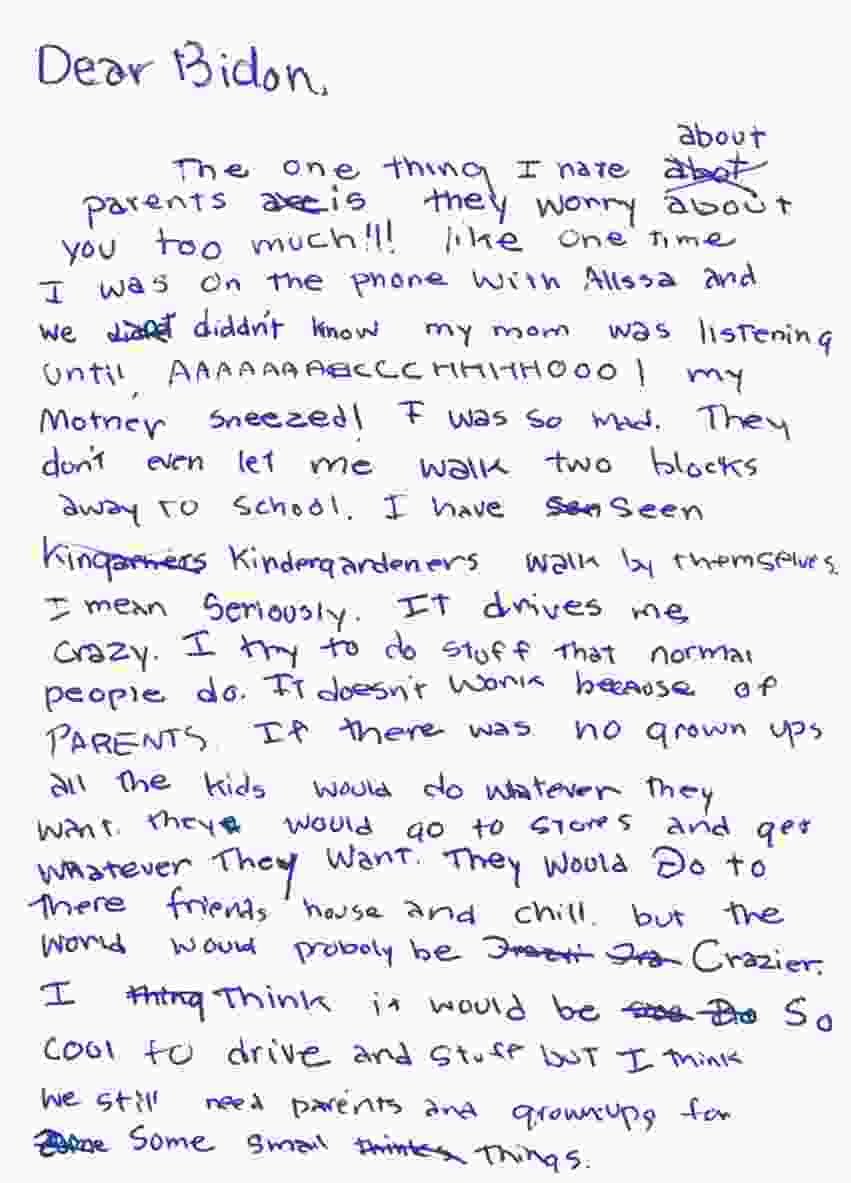 Dear Bidon,
about
The one thing I hate abot
parents are is they worry about
you too much!!! like one time
I was on the phone with Alissa and
we didnt diddn't know my mom was listening
until, AAAAAAAECCCHHHHHOOO! my
Mother sneezed! I was so mad. They
don't even let me walk two blocks
away to school. I have sen seen
kingarners Kindergardeners walk by themselves.
I mean Seriously. It drives me
crazy. I try to do stuff that normal
people do. It doesn't work because of
PARENTS. If there was no grown ups
all the kids would do whatever they
want. they would go to stores and get
whatever They want. They would Do to
there friends house and chill. but the
world would proboly be Crazier.
I thing Think it would be So
cool to drive and stuff but I think
we still need parents and grownups for
Some small thinks things.